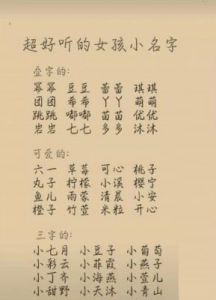 超好听的女孩小名字
叠字的:
幂幂 豆豆 蕾蕾 琪琪
团团 希希 丫丫 萌萌
跳跳 嘟嘟 苗苗 优优
岩岩 七七 多多 沐沐
可爱的:
六一 草莓 可心 桃子
丸子 柠檬 小溪 樱宁
鱼儿 雨萱 小清晨 小安
橙子 竹 米粒 开心
三字的:
小七月 小豆子 小葡萄
小彩云 小菲霞 小燕子
小丁香 小海燕 小萱儿
小甜野 小天沐 小青山